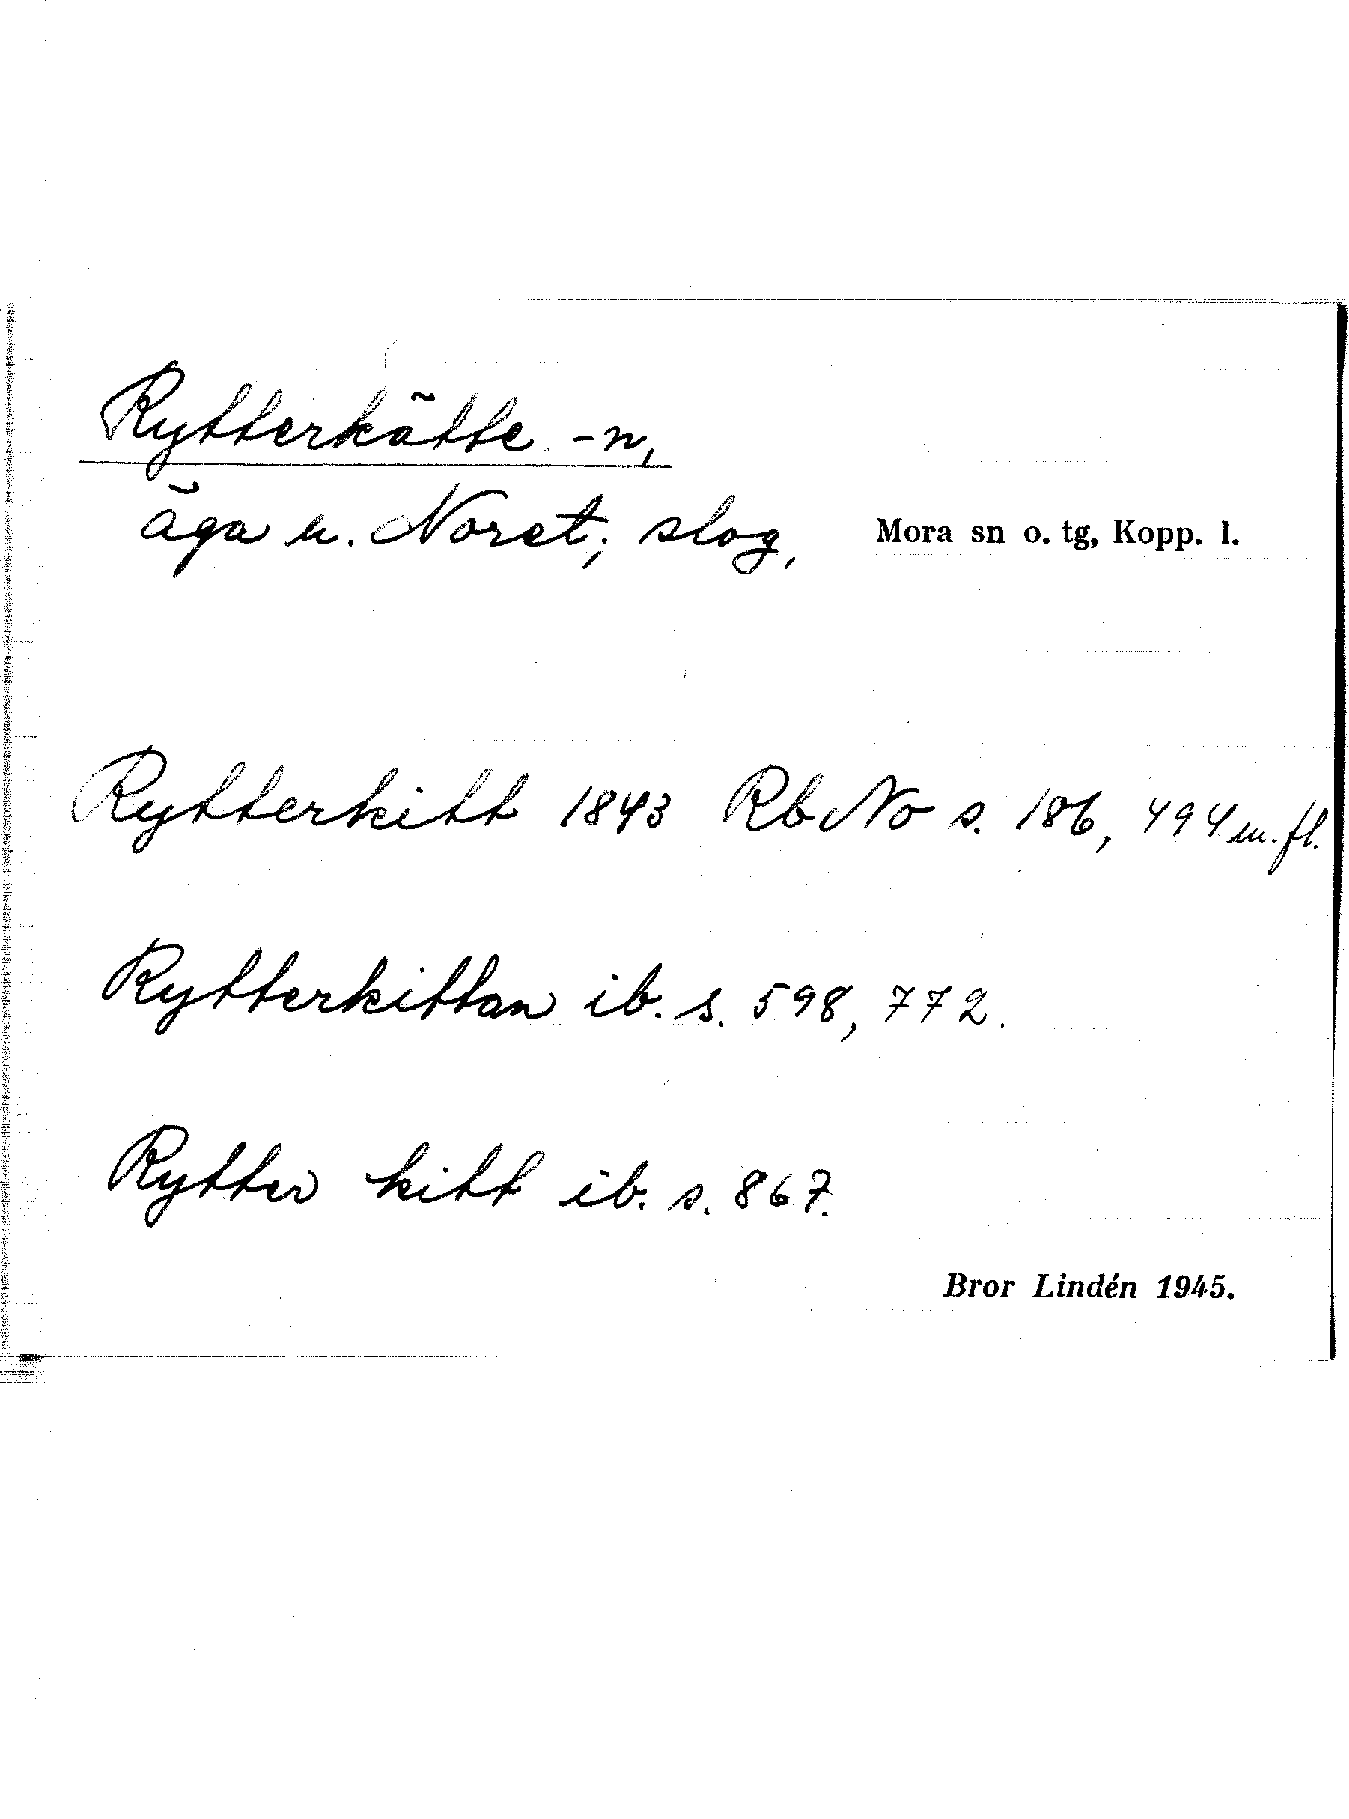 Rytterkätte -n,
äga u. Noret; slog,
Mora sn o. tg, Kopp. l.
Rytterkitt 1843 Rb No s. 186, 494 m. fl.
Rytterkittan ib. s. 598, 772.
Rytter kitt ib. s. 867.
Bror Lindén 1945.